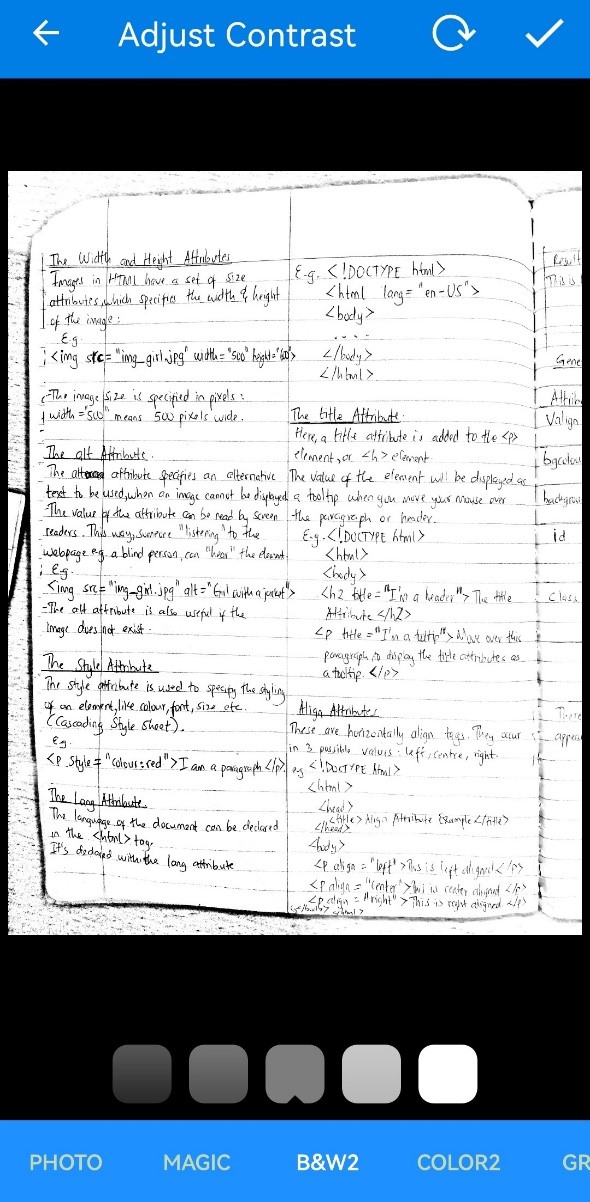 Adjust Contrast
The Width and Height Attributes
Images in HTML have a set of size
attributes, which specifies the width & height
of the image:
E.g.
<img src="img_girl.jpg" width="500" height="600">
-The image size is specified in pixels:
width="500" means 500 pixels wide.
The alt Attribute.
The alt attribute specifies an alternative
text to be used, when an image cannot be displayed
The value of the attribute can be read by screen
readers. This way, someone "listening" to the
webpage e.g. a blind person, can "hear" the element.
E.g.
<img src="img_girl.jpg" alt="Girl with a jacket">
-The alt attribute is also useful if the
image does not exist.
The Style Attribute
The style attribute is used to specify the styling
of an element, like colour, font, size etc.
(Cascading Style Sheet).
e.g.
<p style="colour:red">I am a paragraph</p>
The Lang Attribute
The language of the document can be declared
in the <html> tag.
It's declared with the lang attribute
E.g. <!DOCTYPE html>
<html lang="en-US">
<body>
....
</body>
</html>
The title Attribute.
Here, a title attribute is added to the <p>
element, or <h> element.
The value of the element will be displayed as
a tooltip when you move your mouse over
the paragraph or header.
E.g. <!DOCTYPE html>
<html>
<body>
<h2 title="I'm a header"> The title
Attribute </h2>
<p title="I'm a tooltip"> Move over this
paragraph, to display the title attributes as
a tooltip. </p>
Align Attributes
These are horizontally align tags. They occur
in 3 possible values: left, centre, right.
e.g <!DOCTYPE html>
<html>
<head>
<title> Align Attribute Example </title>
</head>
<body>
<p align="left">This is left aligned</p>
<p align="center">This is center aligned </p>
<p align="right">This is right aligned </p>
</body> </html>
Result
This is
Gene
Attrib
Valign
bgcolou
backgrou
id
Class
These
appear
PHOTO MAGIC B&W2 COLOR2 GR